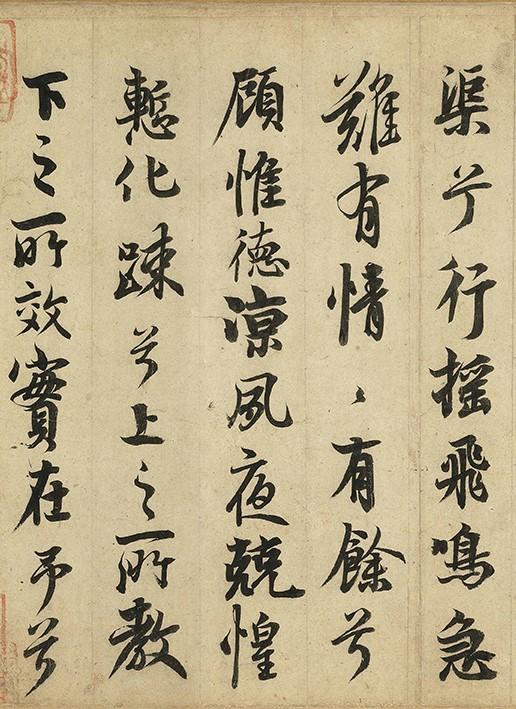 渠兮行摇飛鳴急
難有情〻有餘兮
顧惟德凉夙夜兢惶
慙化踈兮上之所教
下之所效實在乎兮